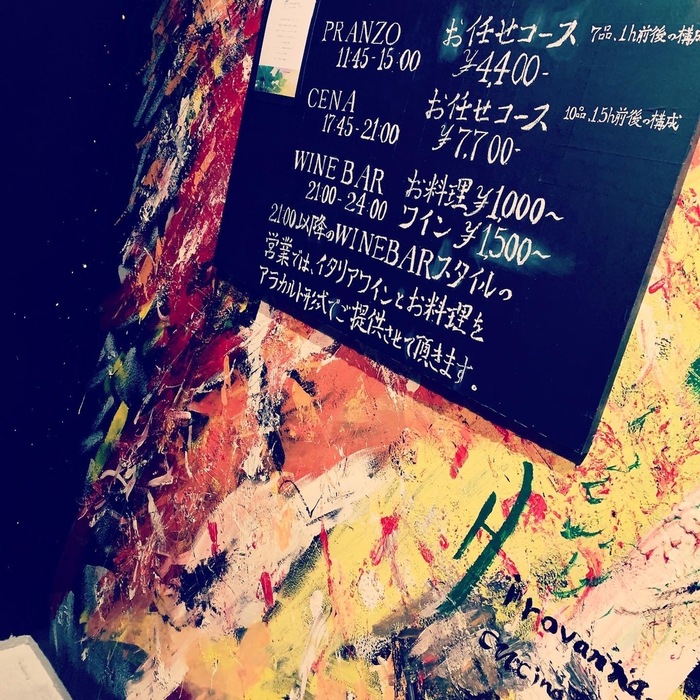 PRANZO お任せコース 7品、1h前後の構成
11:45-15:00 ¥4,400-
CENA お任せコース 10品、1.5h前後の構成
17:45-21:00 ¥7,700-
WINE BAR お料理 ¥1,000〜
21:00-24:00 ワイン ¥1,500〜
21:00以降のWINEBARスタイルの
営業では、イタリアワインとお料理を
アラカルト形式でご提供させて頂きます。